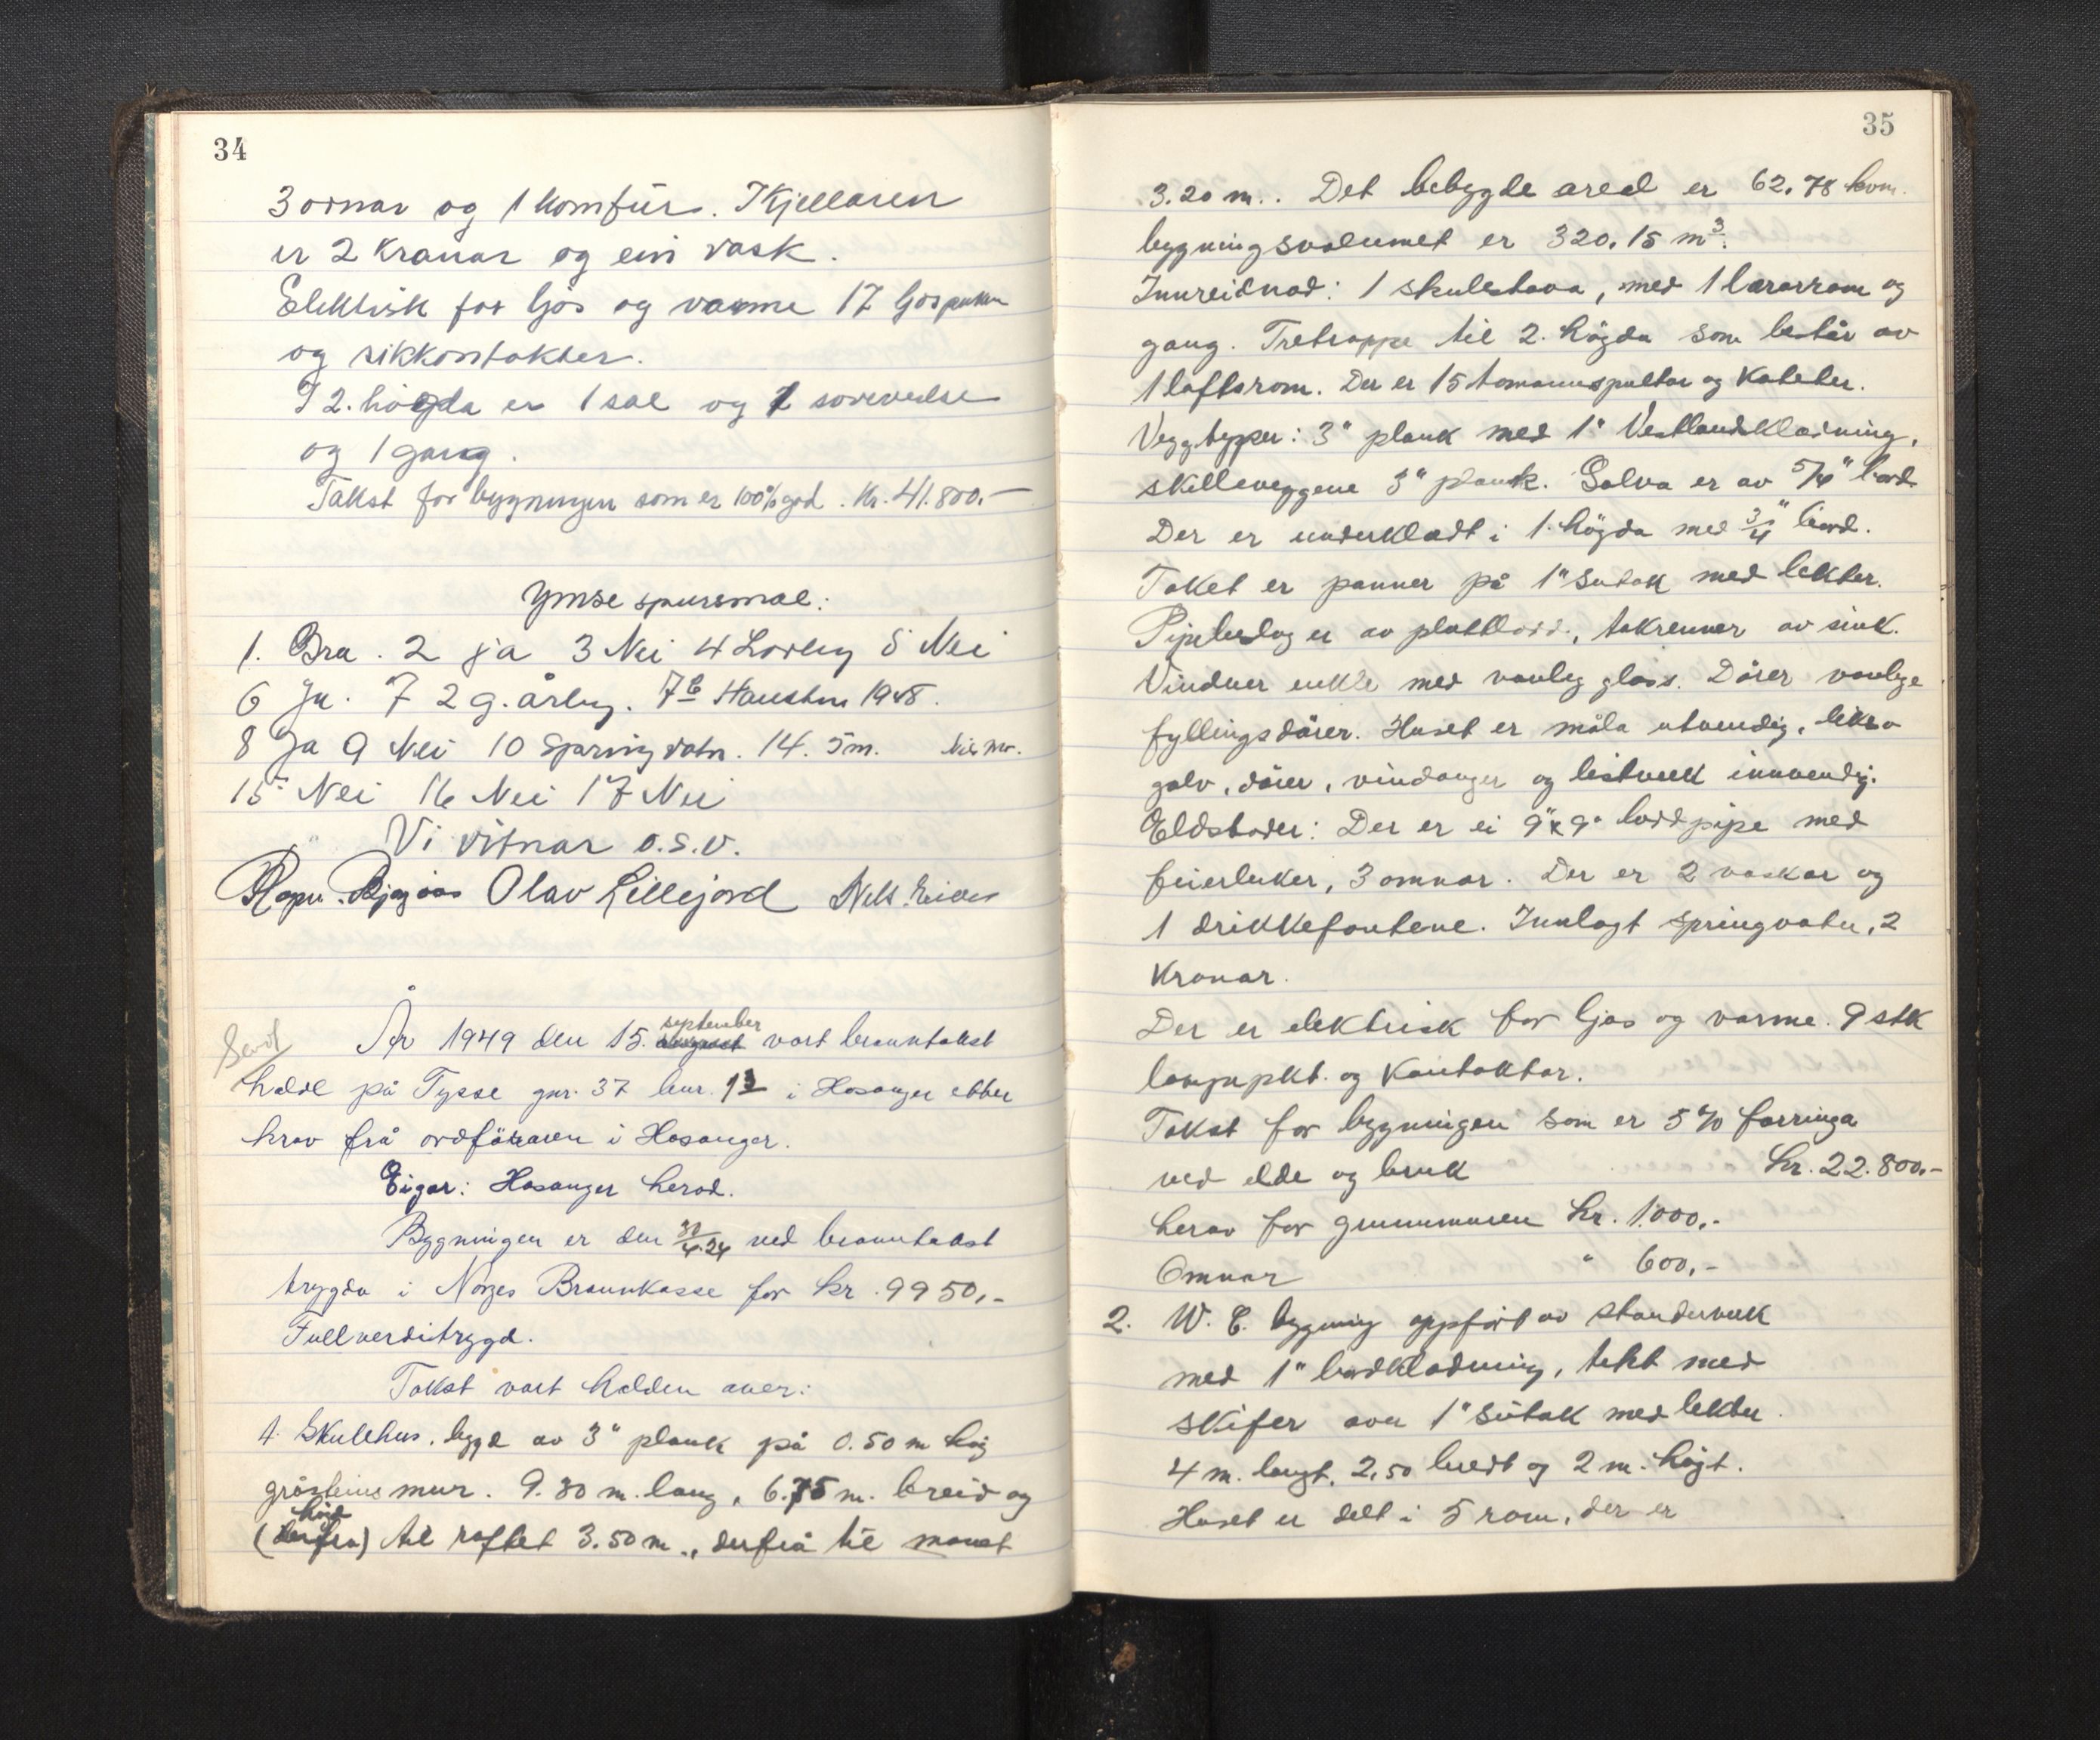 34
3 ovnar og 1 komfür. I Kjellaren
er 2 kranar og ein vask.
Elektrisk for ljos og varme 17 ljospunkter
og stikkontakter.
I 2. högda er 1 sal og 1 soveverelse
og 1 gang.
Takst for bygningen som er 100% god. Kr. 41.800.–
Ymse spursmal:
1. Bra. 2 ja 3 Nei 4 Lovleg 5 Nei
6 Ja. 7 2 g. årleg. 7b Hausten 1948.
8 Ja 9 Nei 10 Spring vatn. 14. 5m.
15 Nei 16 Nei 17 Nei
Vi vitnar o.s.v.
Olav Lillejord Nils Eides
Sendt
År 1949 den 15. august september vart branntakst
halde på Tysse gnr. 37 bnr. 13 i Hosanger etter
krav frå ordföraren i Hosanger.
Eigar: Hosanger herad.
Bygningen er den 30/4.24 ved branntakst
trygda i Norges Brannkasse for kr. 9950,-
Fullverditrygd.
Takst vart halden over:
1. Skulehus, bygd av 3" plank på 0.50 m høg
gråsteins mur. 9.30 m. lang, 6.75 m. breid og
(derfra) høgd til raftet 3.50 m., derfrå til mønet
35
3.20 m.. Det bebygde areal er 62,78 kvm.
bygningsvolumet er 320,15 m³.
Innreidnad: 1 skulestova, med 1 lærarrom og
gang. Tretrappe til 2. högda som består av
1 loftsrom. Der er 15 tomannspultar og Kateter.
Veggtyper: 3" plank med 1" Vestlandsklædning,
skilleveggene 3" plank. Golva er av 5/4" bord.
Der er underklædt i 1. högda med 3/4" bord.
Taket er panner på 1" sutak med lekter.
Pipebeslag er av plattlodd., takrenner av sink.
Vinduer enkle med vanleg glass. Dörer vanlege
fyllingsdörer. Huset er måla utvendig, likso
golv, dörer, vindauger og listverk innvendig.
Eldstader: Der er ei 9"x9" loddpipe med
feierluker, 3 omnar. Der er 2 vaskar og
1 drikkefontene. Innlagt springvatn, 2
Kranar.
Der er elektrisk for ljos og varme. 9 stk
lampepkt. og Kontaktar.
Takst for bygningen som er 5% forringa
ved elde og bruk kr. 22.800.-
herav for grunnmuren kr. 1.000,-
Omnar " 600,-
2. W.C. bygning oppfört av standerverk
med 1" bordklædning, tekt med
skifer over 1" sutak med lekter.
4 m. langt, 2,50 bredt og 2 m. högt.
Huset er delt i 5 rom, der er